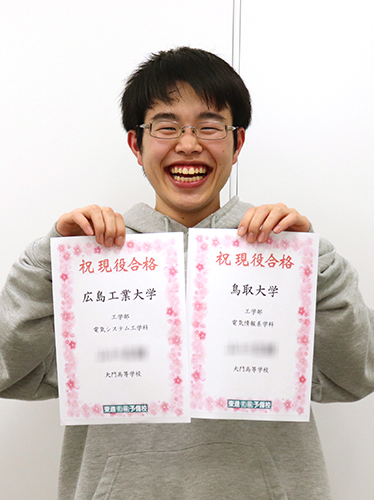 祝 現役合格
広島工業大学
工学部
電気システム工学科
大門高等学校
東進衛星予備校
祝 現役合格
鳥取大学
工学部
電気情報系学科
大門高等学校
東進衛星予備校